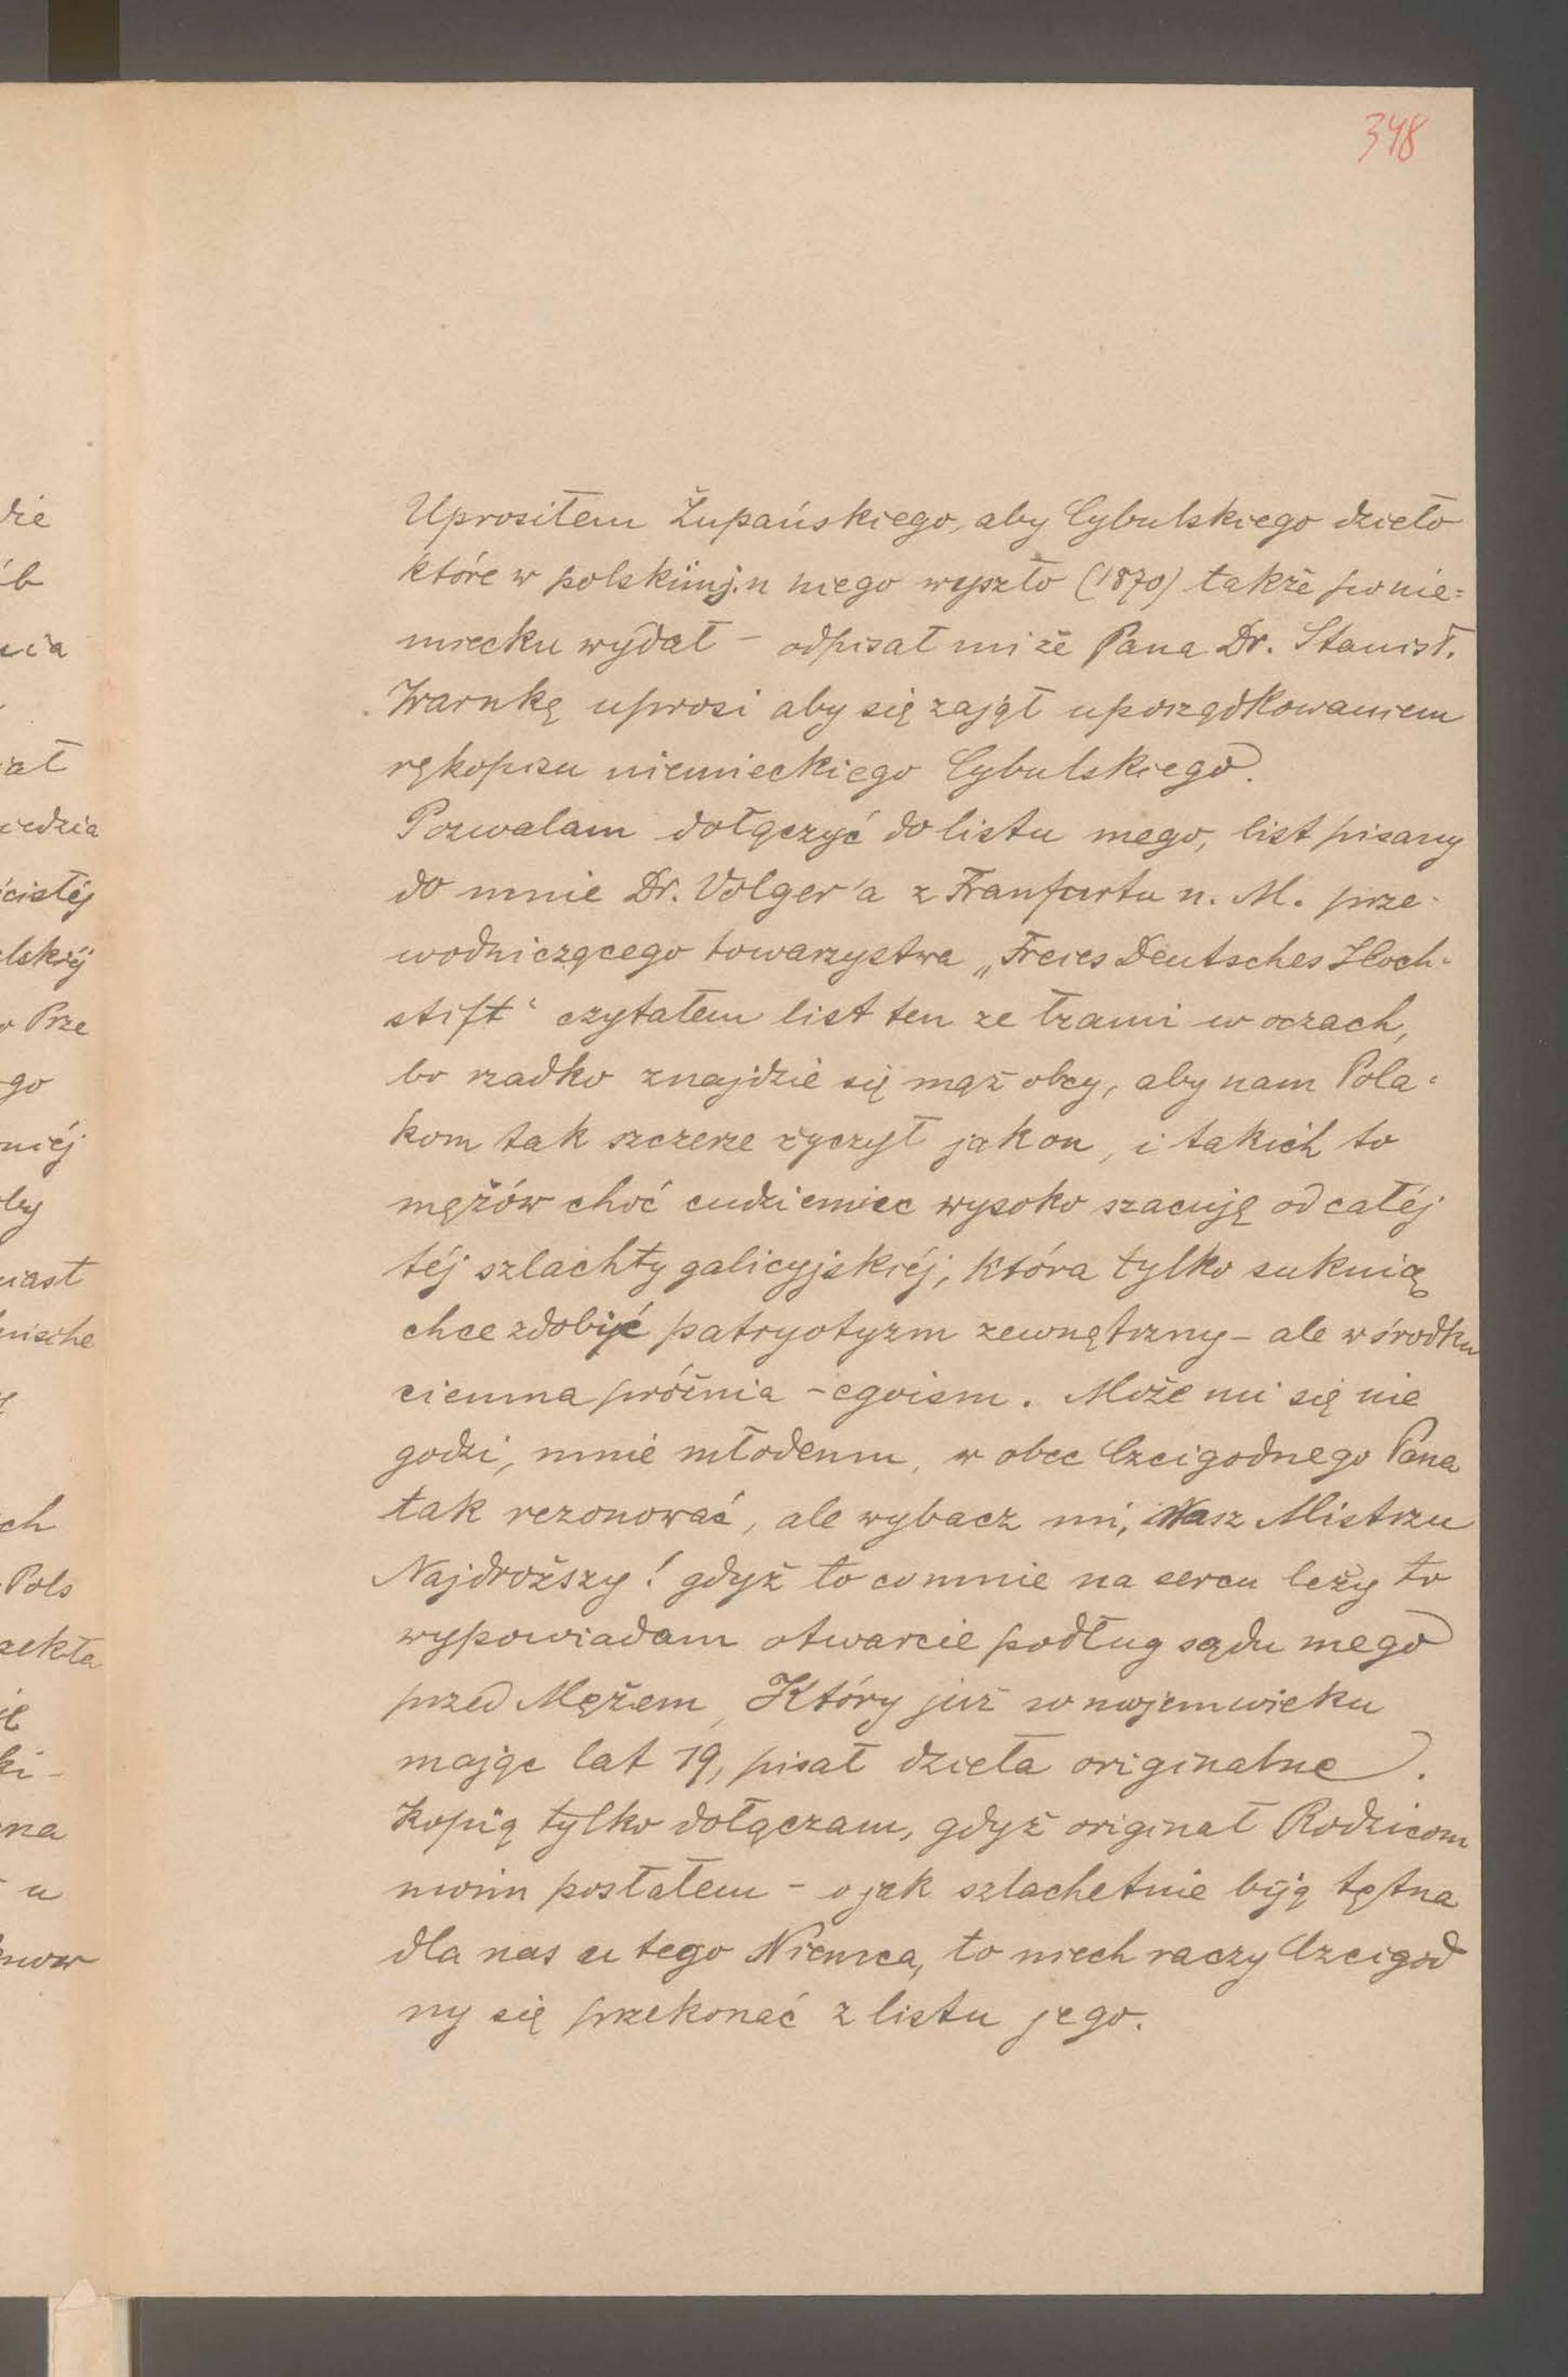 348
Uprosiłem Żupańskiego, aby Cybulskiego dzieło
które w polskiimj. u niego wyszło (1870) także po nie=
miecku wydał – odpisał mi że Pana Dr. Stanisł.
Warnkę uprosi aby się zajął uporządkowaniem
rękopisu niemieckiego Cybulskiego.
Pozwalam dołączyć do listu mego, list pisany
do mnie Dr. Volger'a z Franfurtu n. M. prze-
wodniczącego towarzystwa „Freies Deutsches Hoch-
stift“ czytałem list ten ze łzami w oczach,
bo rzadko znajdzie się mąż obcy, aby nam Pola-
kom tak szczerze życzył jak on, i takich to
mężów choć cudziemiec wysoko szacuję od całéj
téj szlachty galicyjskiéj, która tylko suknią
chce zdobić patryotyzm zewnętrzny – ale w środku
ciemna próżnia – egoism. Może mi się nie
godzi, mnie młodemu, w obec Czcigodnego Pana
tak rezonować, ale wybacz mi, Nasz Mistrzu
Najdroższy! gdyż to co mnie na sercu leży to
wypowiadam otwarcie podług sądu mego
przed Mężem, Który już w mojem wieku
mając lat 19, pisał dzieła originalne.
Kopią tylko dołączam, gdyż originał Rodzicom
moim posłałem – o jak szlachetnie biją tętna
dla nas u tego Niemca, to niech raczy Czcigod
ny się przekonać z listu jego.
die
ób
cia
ał
iedzia
ścisłéj
elskiéj
o Prze
go
niéj
by
iast
nische
ch
Pols
zekła
ki -
na
u